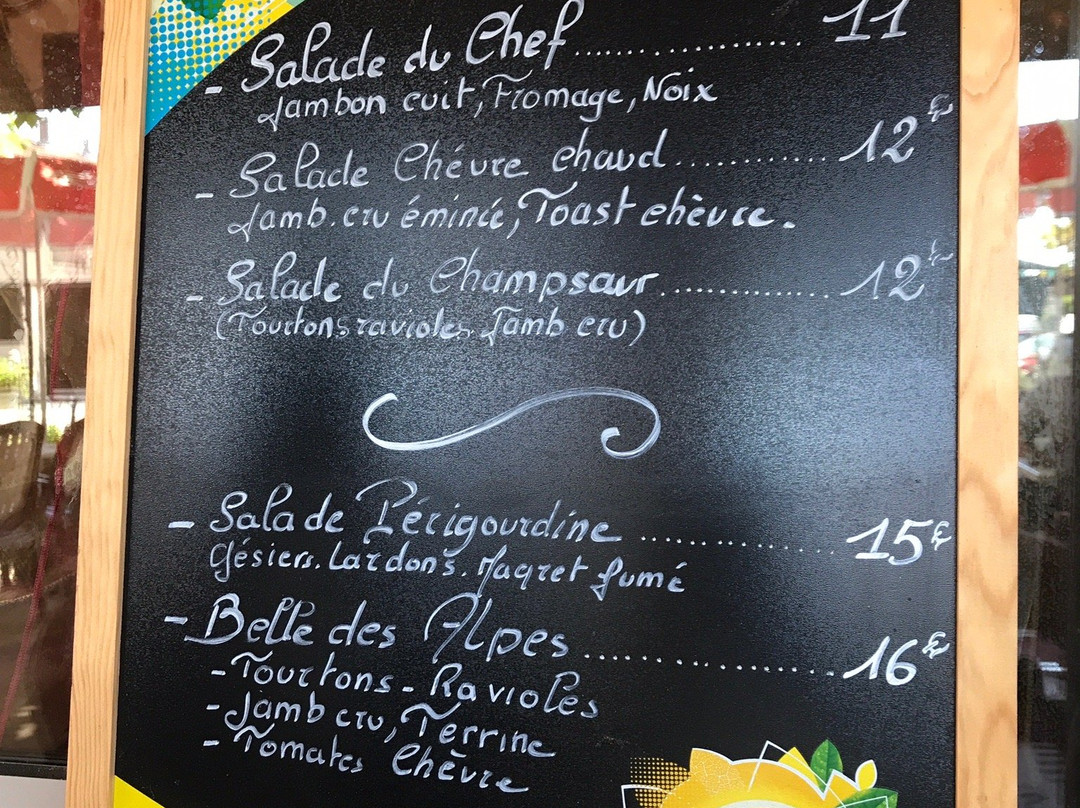 - Salade du Chef.................. 11
Jambon cuit, Fromage, Noix
- Salade Chévre chaud............ 12€
Jamb. cru émincé, Toast chèvre.
- Salade du Champsaur............ 12€
(Tourtons ravioles Jamb cru)
- Salade Périgourdine ............... 15€
Gésiers. Lardons. Magret fumé
- Belle des Alpes .................. 16€
- Tourtons - Ravioles
- Jamb cru, Terrine
- Tomates Chèvre